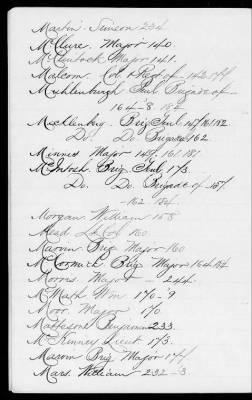 Martin. Simson 234
McClure. Major 140
McClintock Major 141.
Malcom. Col & Regt of 142.144
Muhlenburgh Genl Brigade of
164-8. 182
Mecklenburg. Brig Genl 147/161/182
Do. Do. Brigade 162
Minnes Major 147. 161. 181
McIntosh. Brig Genl 173.
Do. Do. Brigade of 157.
162 184.
Morgan William 158
Mead Lt Col 160.
Marvin Brig Major 160
McCormick Brig Major 164.182
Morris. Major - 244.
McMath Wm 170-9
Moor. Major 170
Matteson Benjamin 233.
McKenney Lieut 173.
Marvin Brig. Major 174
Mars. William - 232-3